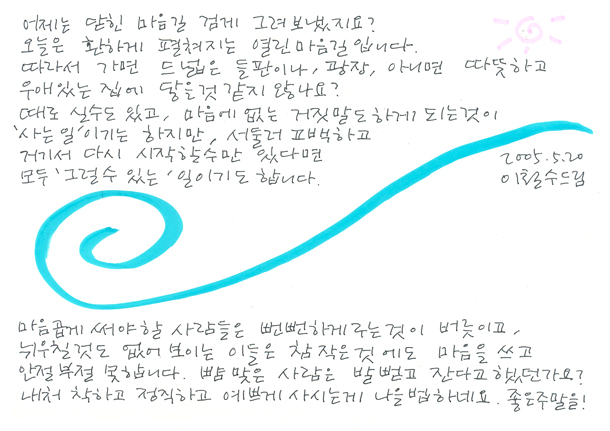 어제는 닫힌 마음길 검게 그려 보냈지요?
오늘은 환하게 펼쳐지는 열린 마음길입니다.
따라서 가면 드넓은 들판이나, 광장, 아니면 따뜻하고
우애있는 집에 닿을것 같지 않나요?
때로 실수도 있고, 마음에 없는 거짓말도 하게 되는것이
'사는 일'이기는 하지만, 서둘러 고백하고
거기서 다시 시작할수만 있다면
모두 '그럴 수 있는' 일이기도 합니다.
2005.5.20
이철수드림
마음곱게 써야 할 사람들은 뻔뻔하게 구는것이 버릇이고,
뉘우칠것도 없어 보이는 이들은 참 작은것에도 마음을 쓰고
안절부절 못합니다. 뺨 맞은 사람은 발 뻗고 잔다고 했던가요?
내처 착하고 정직하고 예쁘게 사시는게 나을법하네요. 좋은주말을!